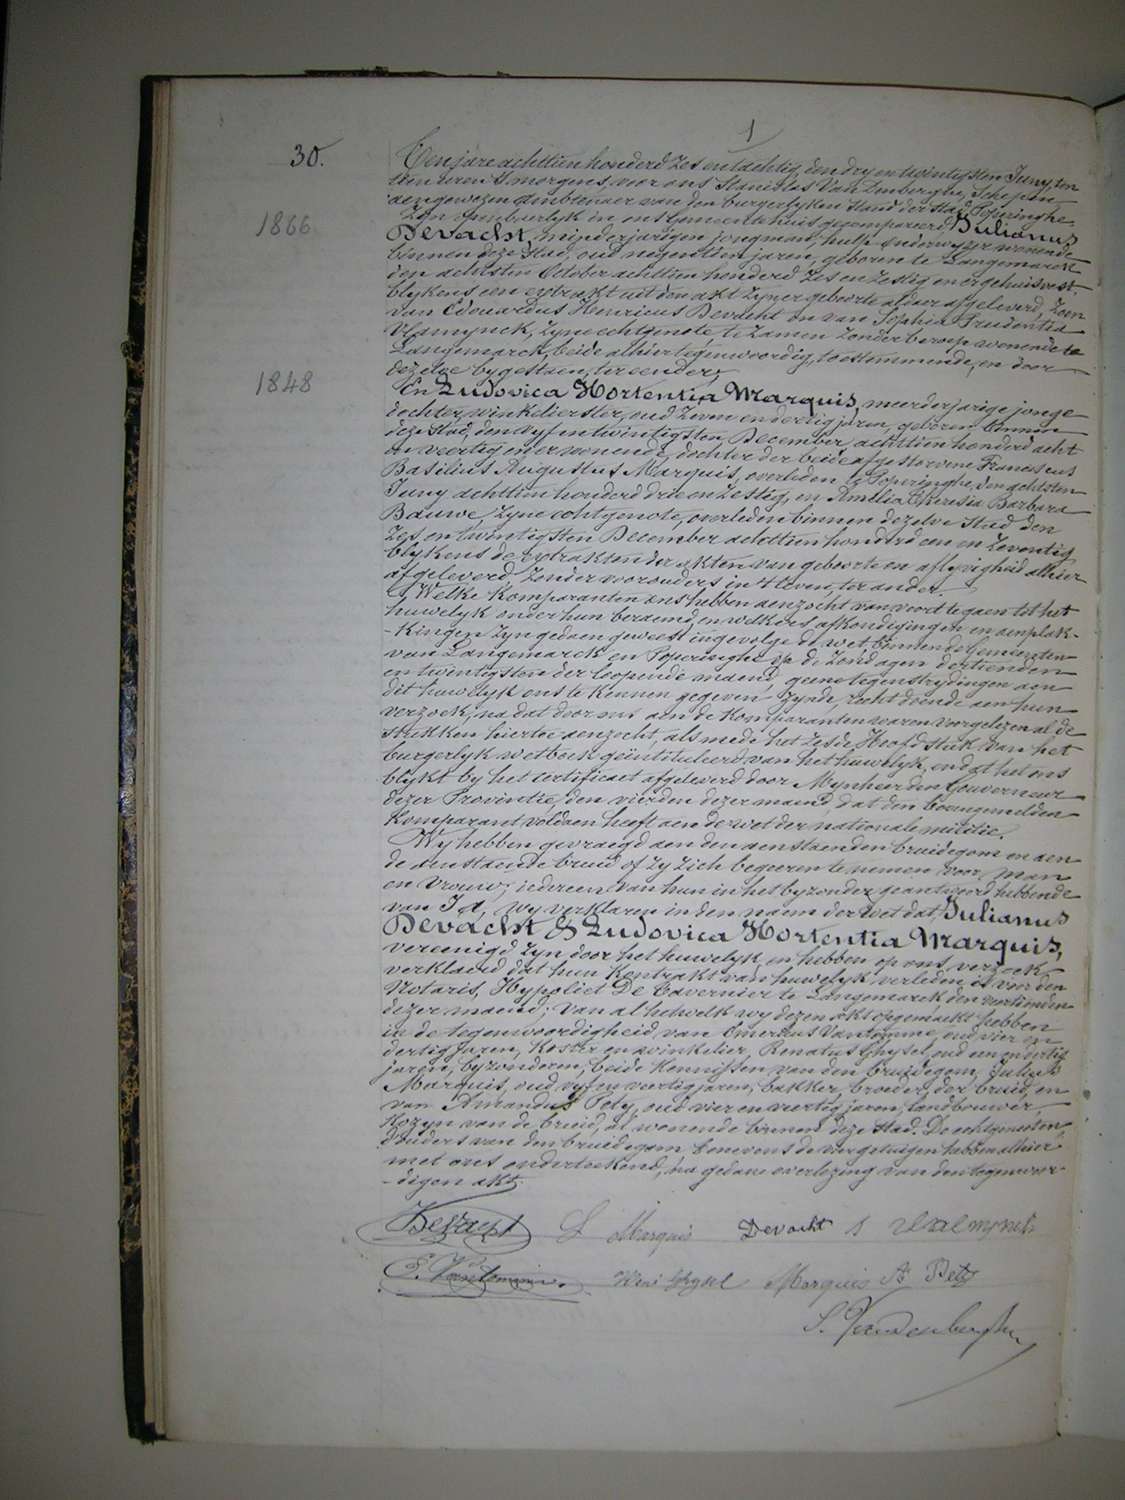 1
30.
Ten jare achttien honderd zes en tachtig, den dry en twintigsten Juny, ten
tien uren 's morgens, voor ons Stanislas Van Emberghe, Schepen
aengewezen ambtenaer van den burgerlyken stand der stad Poperinghe
Zyn openbaerlyk in ons Gemeentehuis gecompareerd Julianus
1866
Devacht, minderjarigen jongman, hulp-onderwyzer wonende
binnen deze stad, oud negentien jaren, geboren te Langemarck
den achtsten October achttien honderd zes en zestig en er gehuisvest
blykens een extrakt uit den akt zyner geboorte aldaer afgeleverd, zoon
van Edouardus Henricus Devacht en van Sophia Prudentia
Vlamynck, zyne echtgenote, te zamen zonder beroep wonende te
Langemarck, beide alhier tegenwoordig, toestemmende, en door
dezelve bygestaen, ter eender;
1848
En Ludovica Hortentia Marquis, meerderjarige jonge
dochter, winkelierster, oud zeven en dertig jaren, geboren binnen
deze stad, den vyf en twintigsten December achttien honderd acht
en veertig en er wonende, dochter der beide afgestorvene Franciscus
Basilius Augustus Marquis, overleden te Poperinghe, den achtsten
Juny achttien honderd drie en zestig, en Amelia Theresia Barbara
Bauwe, zyne echtgenote, overleden binnen dezelve stad den
zes en twintigsten December achttien honderd een en zeventig
blykens de extrakten der akten van geboorte en aflyvigheid alhier
afgeleverd, zonder voorouders in 't leven, ter ander.
Welke Komparanten ons hebben aenzocht van voort te gaen tot het
huwelyk onder hun beraemd, en welkers afkondigingen en aenplak-
-kingen zyn gedaen geweest ingevolge de wet binnen de Gemeenten
van Langemarck en Poperinghe op de zondagen dertienden
en twintigsten der loopende maend, geene tegenstrydingen aen
dit huwelyk ons te kennen gegeven zynde, recht doende aen hun
verzoek, na dat door ons aen de Komparanten waren voorgelezen al de
stukken hiertoe aenzocht, als mede het zesde Hoofdstuk van het
burgerlyk wetboek geïntituleerd van het huwelyk, en dat het ons
blykt by het certificaet afgeleverd door Mynheer den Gouverneur
dezer Provintie, den vierden dezer maend, dat den bovengemelden
Komparant voldaen heeft aen de wet der nationale militie.
Wy hebben gevraegd aen den aenstaenden bruidegom en aen
de aenstaende bruid of zy zich begeeren te nemen voor man
en vrouw; iedereen van hun in het byzonder geantwoord hebbende
van Ja, wy verklaren in den naem der wet dat, Julianus
Devacht & Ludovica Hortentia Marquis,
vereenigd zyn door het huwelyk, en hebben op ons verzoek
verklaerd dat hun Kontrakt van huwelyk verleden is voor den
Notaris, Hypoliet De Tavernier te Langemarck, den veertienden
dezer maend; Van al hetwelk wy dezen akt opgemaekt hebben
in de tegenwoordigheid van Emericus Vantomme, oud vier en
dertig jaren, Koster en winkelier, Renatus Ghysel, oud een en dertig
jaren, byzonderen, beide kennissen van den bruidegom, Julius
Marquis, oud vyf en veertig jaren, bakker, broeder der bruid, en
van Amandus Pety, oud vier en veertig jaren, landbouwer,
Kozyn van de bruid, al wonende binnen deze stad. De echtgenoten,
d'ouders van den bruidegom, benevens de vier getuigen hebben alhier
met ons onderteekend, na gedane overlezing van den tegenwoor-
-digen akt.
Devacht L Marquis Devacht S Vlaemynck
E. Vantomme. René Ghysel Marquis A Pety